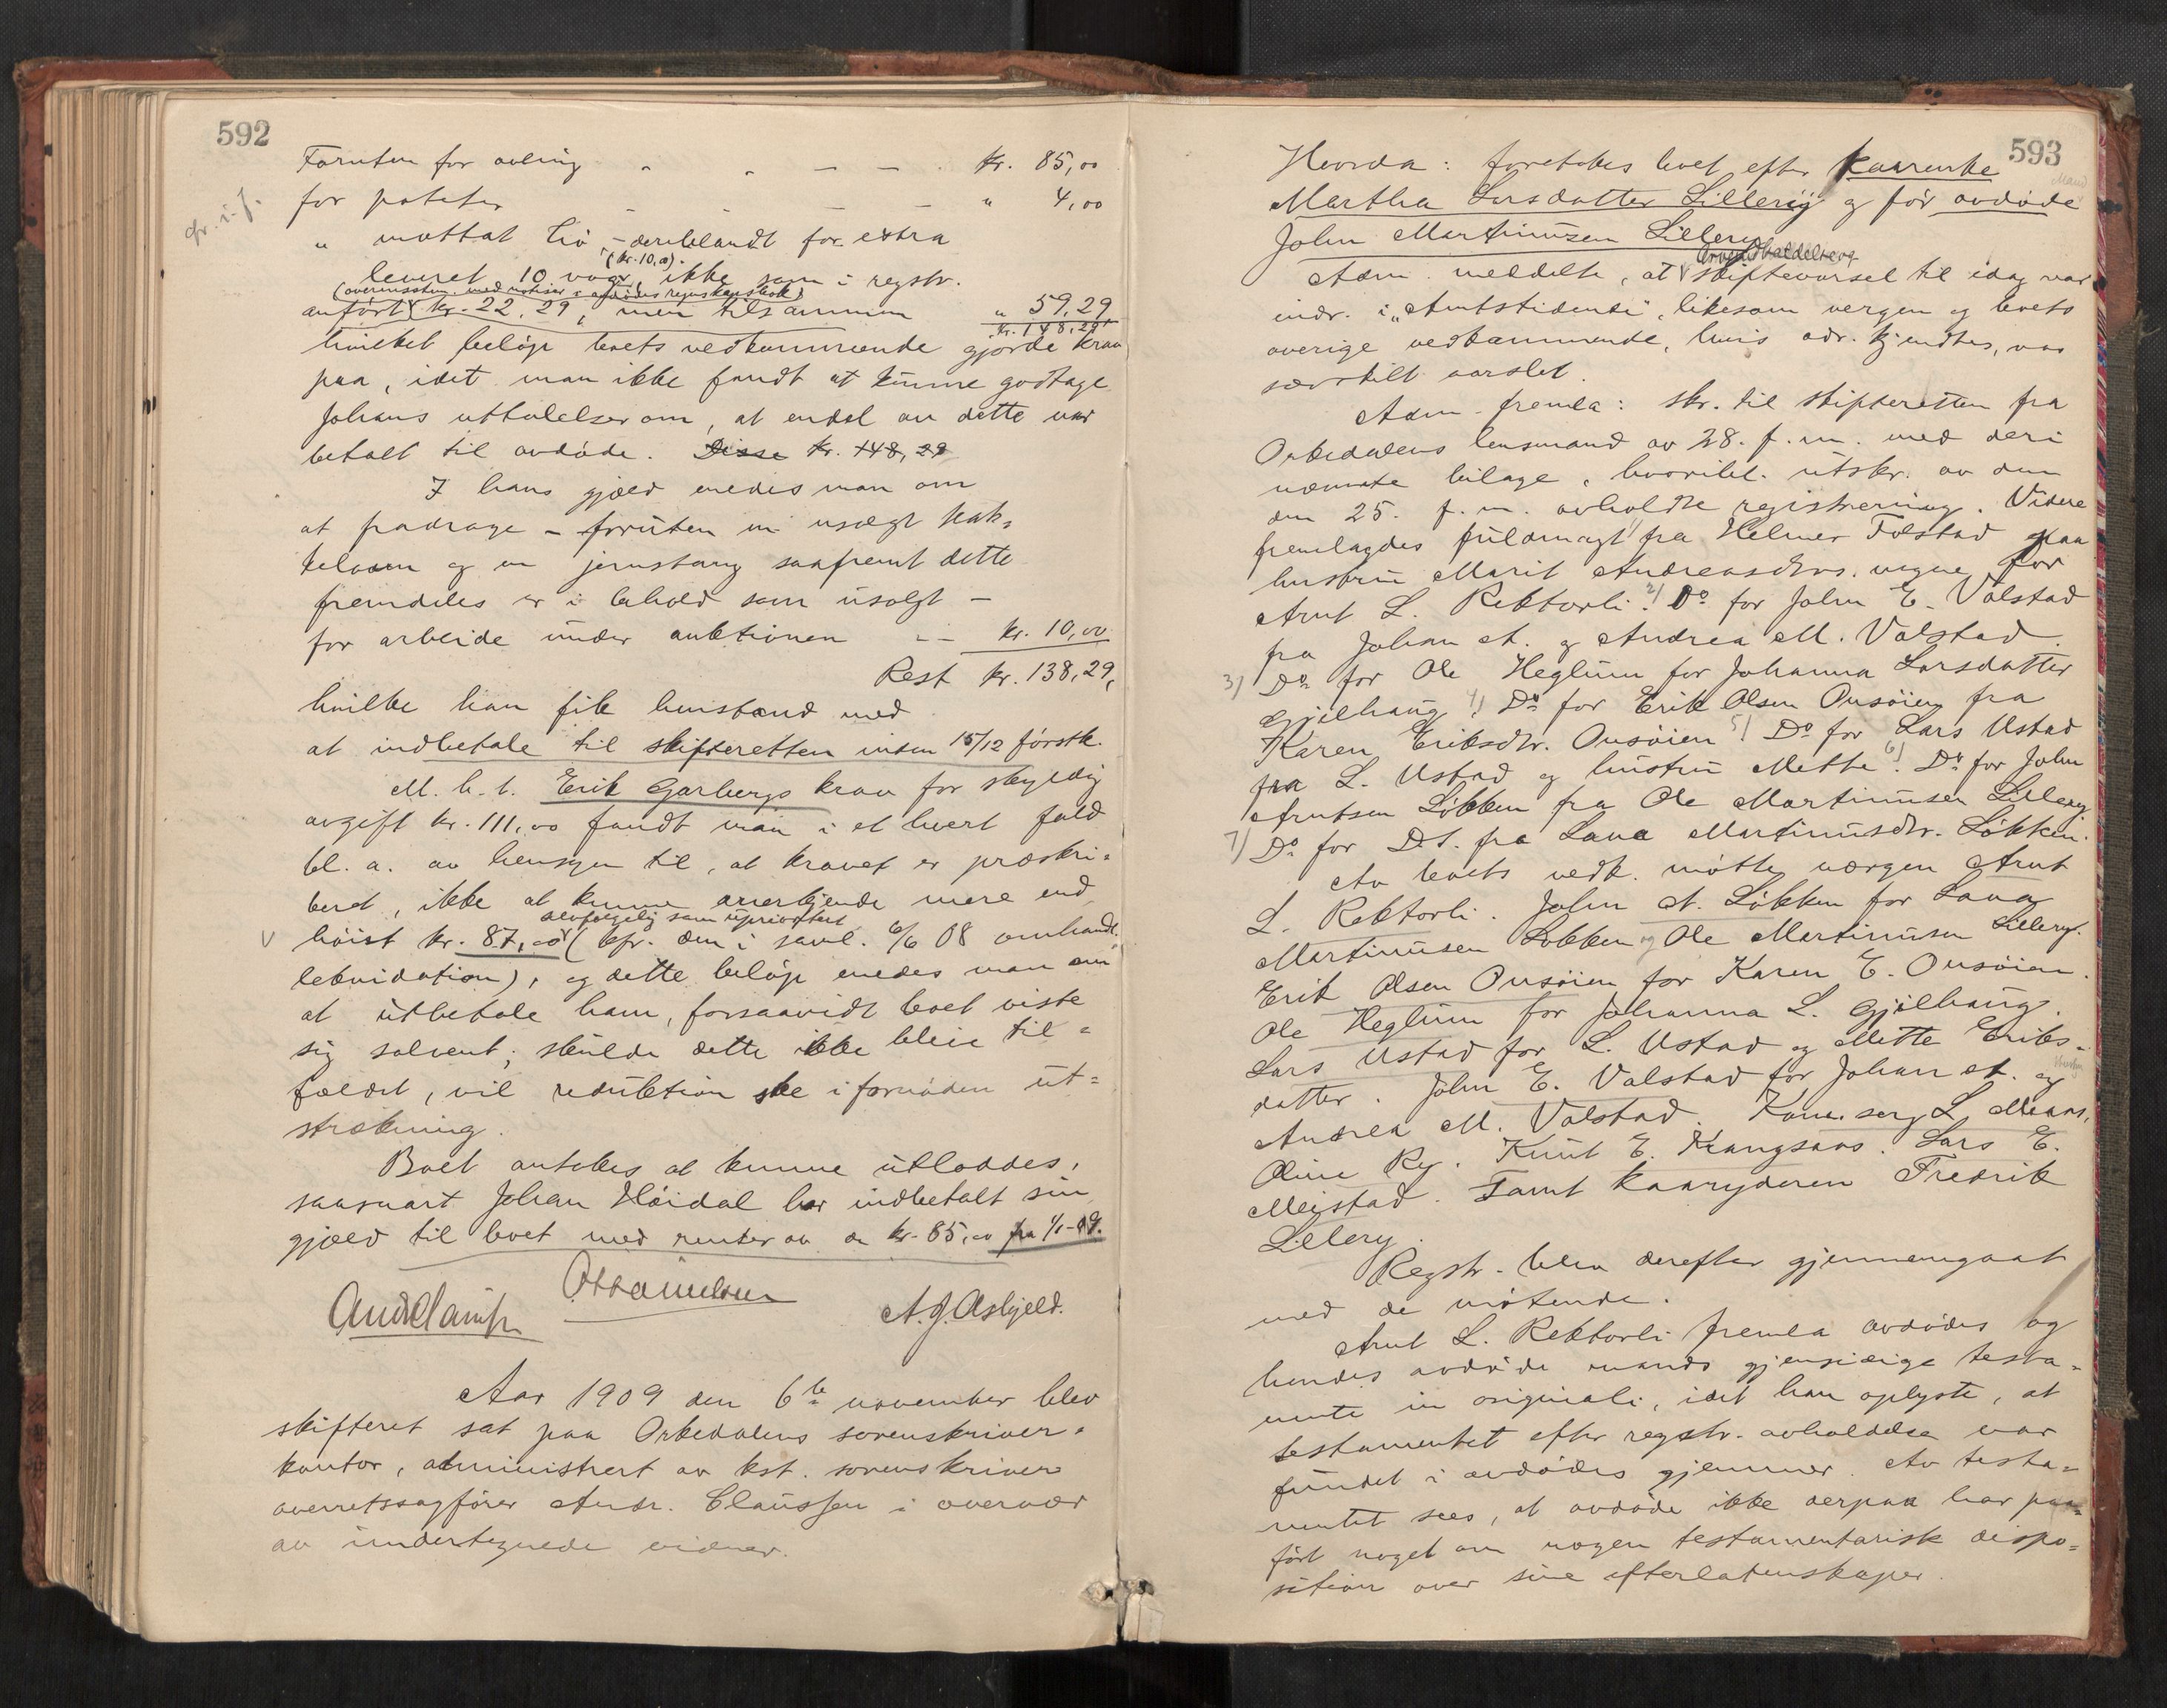 592
Foruten for avling " " — — kr. 85,00
for poteter — — — — " 4,00
" mottat hö, – deriblandt for extra
(kr. 10,00)
leveret 10 voger, ikke som i regstr.
(overensstem. med notiser i avdödes regnskapsbok)
anfört kr. 22,29, men tilsammen " 59,29
kr. 148,29
hvilket belöp boets vedkommende gjorde krav
paa, idet man ikke fandt at kunne godtage
Johans uttalelser om, at endel av dette var
betalt til avdöde. Disse kr. 148,29
I hans gjæld enedes man om
at fradrage – foruten en usolgt
og en jernstang saafremt dette
fremdeles er i behold som usolgt –
for arbeide under auktionen — kr. 10,00
Rest kr. 138,29,
hvilke han fik henstand med
at indbetale til skifteretten inden 15/12 förstk.
M. h. t. Erik Garbergs krav for skyldig
avgift kr. 111,00 fandt man i et hvert fald
bl. a. av hensyn til, at kravet er præskri-
beret, ikke at kunne anerkjende mere end
selvfølgelig som uprioritert
höist kr. 87,00 (kfr. den i saml. 6/6 08 omhandl.
lekvidation), og dette belöp enedes man om
at utbetale ham, forsaavidt boet viste
sig solvent; skulde dette ikke blive til-
fældet, vil reduktion ske i fornöden ut-
strækning.
Boet antokes at kunne utloddes,
saasnart Johan Höidal har indbetalt sin
gjæld til boet med renter av de kr. 85,00 fra 1/1-09.
A. J. Asbjeld.
Aar 1909 den 6te november blev
skifteret sat paa Orkedalens sorenskriver-
kontor, administrert av kst. sorenskriver
overretssagförer Andr. Claussen i overvær
av undertegnede vidner.
593
Hvorda: foretokes boet efter kaarenke
Martha Larsdatter Lillery og för avdöde
Mand
John Martinusen Lillery.
Adm. meddelte, at skiftevarsel til idag var
indr. i "Amtstidende", likesom vergen og boets
øvrige vedkommende, hvis adr. kjendtes, var
særskilt varslet.
Adm. fremla: skr. til skifteretten fra
Orkedalens lensmand av 28. f. m. med deri
nævnte bilage, hvoribl. utskr. av den
den 25. f. m. avholdte registrering. Videre
fremlagdes fuldmagt 1) fra Helmer Folstad paa
hustru Marit Andreasdtrs. vegne for
Arnt L. Rektorli. 2) Do for John E. Volstad
fra Johan A. og Andrea M. Volstad.
3) Do for Ole Heglum for Johanna Larsdatter
Gjölhaug, 4) Do for Erik Olsen Onsöien fra
Karen Eriksdtr. Onsöien 5) Do for Lars Ustad
fra L. Ustad og hustru Mette. 6) Do for John
Arntsen Lökken fra Ole Martinusen Lillery
7) Do for D.S. fra Lava Martinusdtr. Lökken.
Av boets vedk. mötte værgen Arnt
L. Rektorli. John A. Lökken for Lava
Martinusen Lökken og Ole Martinusen Lillery.
Erik Olsen Onsöien for Karen E. Onsöien.
Ole Heglum for Johanna L. Gjölhaug.
Lars Ustad for L. Ustad og Mette Eriks-
datter. John E. Volstad for Johan A. og
Andrea M. Volstad.
Oline Ry. Knut E. Krangsaas. Lars E.
Meistad. Samt kaaryderen Fredrik
Lillery.
Regstr. blev derefter gjennemgaat
med de mötende.
Arnt L. Rektorli fremla avdödes og
hendes avdöde mands gjensidige testa-
mente in originali, idet han oplyste, at
testamentet efter regstr. avholdelse var
fundet i avdödes gjemmer. Av testa-
mentet sees, at avdöde ikke derpaa har paa-
fört noget om nogen testamentarisk dispo-
sition over sine efterladenskaper.